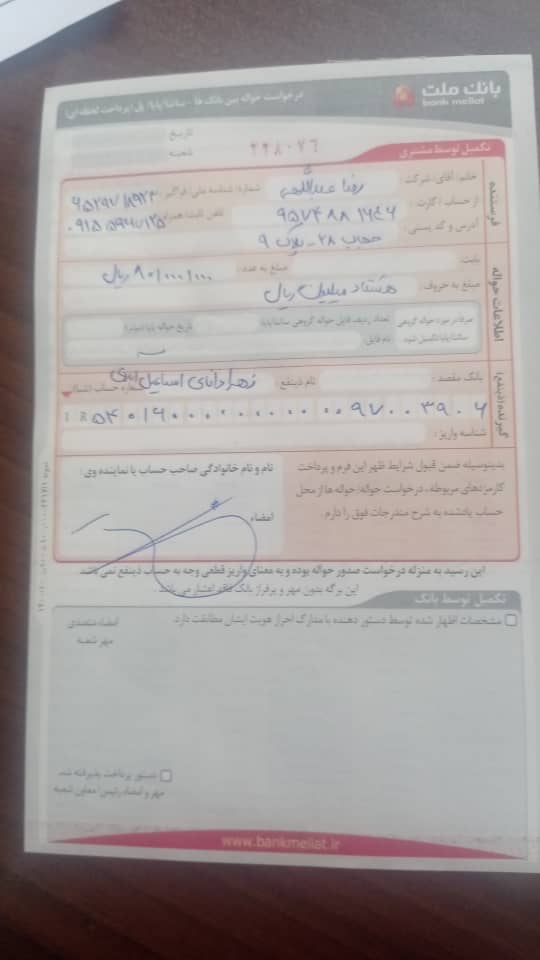 بانک ملت
bank mellat
درخواست حواله بین بانک ها - ساتنا/پایا/ پل (پرداخت لحظه ای)
تاریخ
شعبه
تکمیل توسط مشتری
۲۴۸۰۷۶
فرستنده
خانم/آقای/شرکت: رضا عبداللهی شماره/شناسه ملی/فراگیر:
از حساب/کارت: تلفن ثابت/همراه:
آدرس و کد پستی: حجاب ۲۸ - پلاک ۹
اطلاعات حواله
بابت: مبلغ به عدد: ۸۰/۰۰۰/۰۰۰ ریال
مبلغ به حروف: هشتاد میلیون ریال
صرفا در مورد حواله گروهی ساتنا/پایا تکمیل شود.
تعداد ردیف فایل حواله گروهی ساتنا/پایا:
تاریخ حواله پایا
نام فایل:
گیرنده (ذینفع)
بانک مقصد: نام ذینفع: زهرا دانای اسماعیل
شماره حساب
IR ۵۴۰۱۶۰۰۰۰۰۰۰۰۰۰۰۰۹۷۰۰۳۹۰۶
شناسه واریز:
بدینوسیله ضمن قبول شرایط ظهر این فرم و پرداخت کارمزدهای مربوطه، درخواست حواله/حواله ها از محل حساب یادشده به شرح مندرجات فوق را دارم.
نام و نام خانوادگی صاحب حساب یا نماینده وی:
امضاء
این رسید به منزله درخواست صدور حواله بوده و به معنای واریز قطعی وجه به حساب ذینفع نمی باشد.
این برگه بدون مهر و پرفراژ بانک فاقد اعتبار می باشد.
تکمیل توسط بانک
مشخصات اظهار شده توسط دستور دهنده با مدارک احراز هویت ایشان مطابقت دارد.
امضاء متصدی
مهر شعبه
دستور پرداخت پذیرفته شد.
مهر و امضاء رئیس/معاون شعبه
www.bankmellat.ir